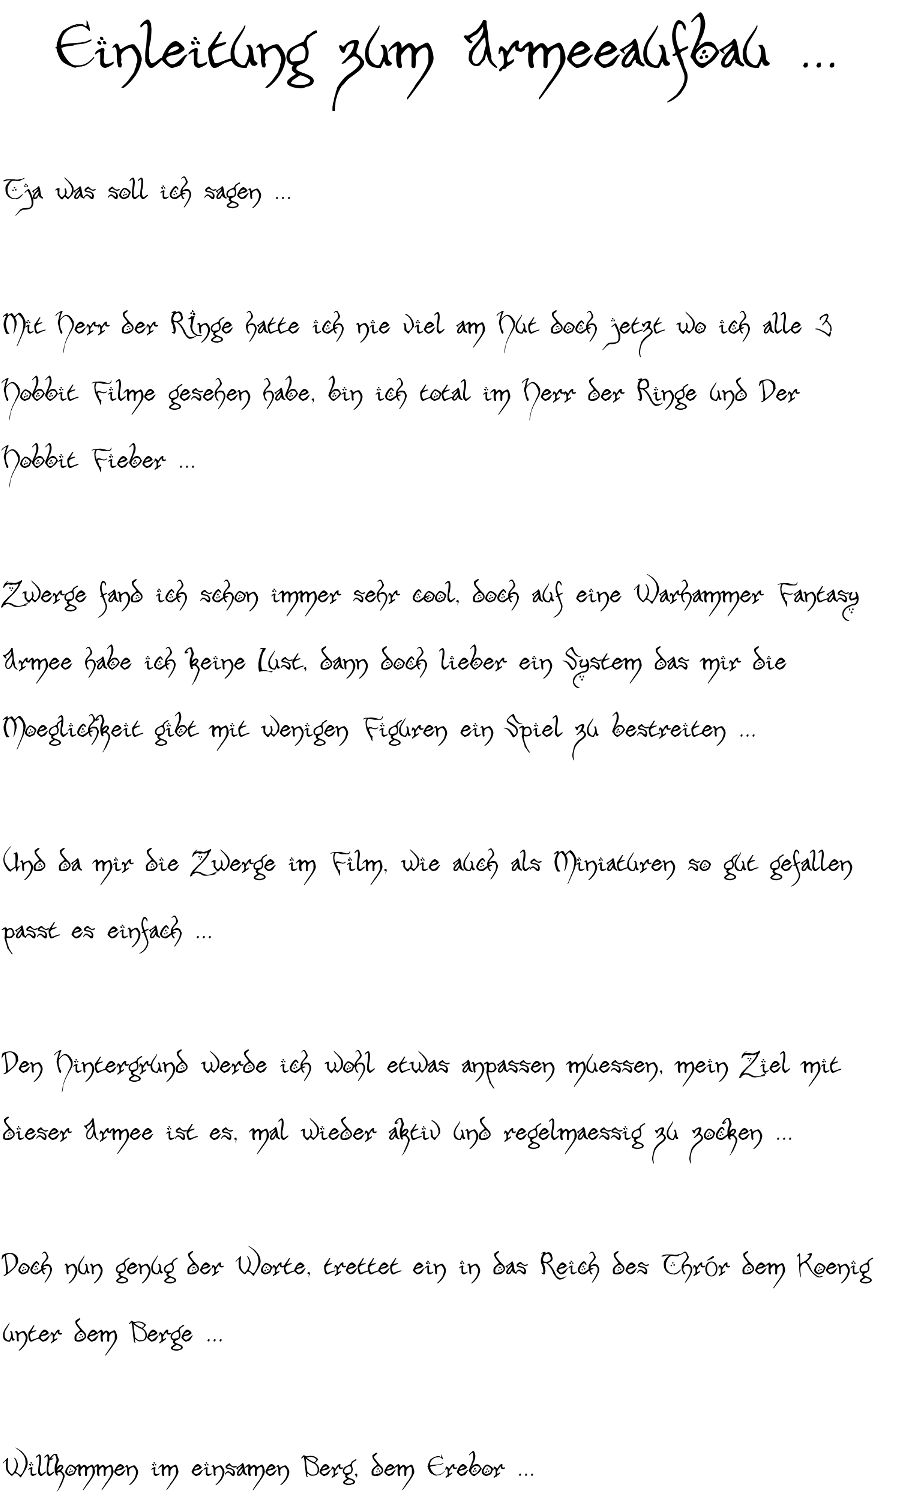 Einleitung zum Armeeaufbau ...
Tja was soll ich sagen ...
Mit Herr der RInge hatte ich nie viel am Hut doch jetzt wo ich alle 3
Hobbit Filme gesehen habe, bin ich total im Herr der Ringe und Der
Hobbit Fieber ...
Zwerge fand ich schon immer sehr cool, doch auf eine Warhammer Fantasy
Armee habe ich keine Lust, dann doch lieber ein System das mir die
Moeglichkeit gibt mit wenigen Figuren ein Spiel zu bestreiten ...
Und da mir die Zwerge im Film, wie auch als Miniaturen so gut gefallen
passt es einfach ...
Den Hintergrund werde ich wohl etwas anpassen muessen, mein Ziel mit
dieser Armee ist es, mal wieder aktiv und regelmaessig zu zocken ...
Doch nun genug der Worte, trettet ein in das Reich des Thrór dem Koenig
unter dem Berge ...
Willkommen im einsamen Berg, dem Erebor ...